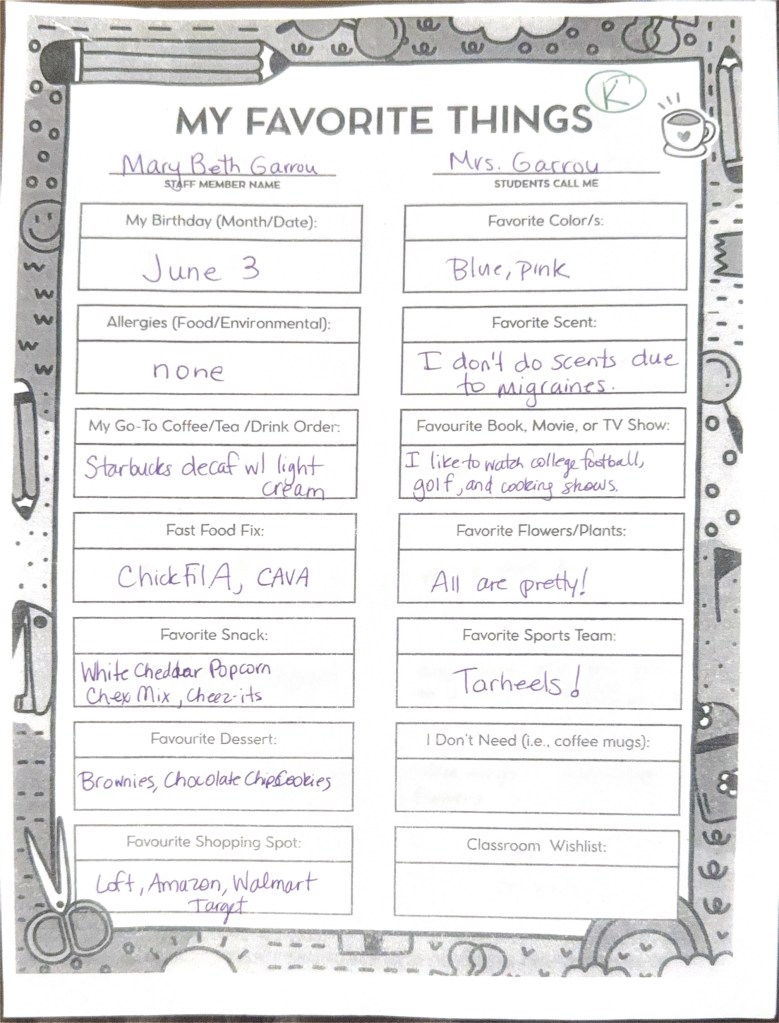 K
MY FAVORITE THINGS
Mary Beth Garrou
STAFF MEMBER NAME
Mrs. Garrou
STUDENTS CALL ME
My Birthday (Month/Date):
June 3
Favorite Color/s:
Blue, pink
Allergies (Food/Environmental):
none
Favorite Scent:
I don't do scents due
to migraines.
My Go-To Coffee/Tea /Drink Order:
Starbucks decaf w/ light
cream
Favourite Book, Movie, or TV Show:
I like to watch college football,
golf, and cooking shows.
Fast Food Fix:
ChickFilA, CAVA
Favorite Flowers/Plants:
All are pretty!
Favorite Snack:
White Cheddar Popcorn
Chex Mix, Cheez-its
Favorite Sports Team:
Tarheels!
Favourite Dessert:
Brownies, Chocolate Chip Cookies
I Don't Need (i.e., coffee mugs):
Favourite Shopping Spot:
Loft, Amazon, Walmart
Target
Classroom Wishlist: